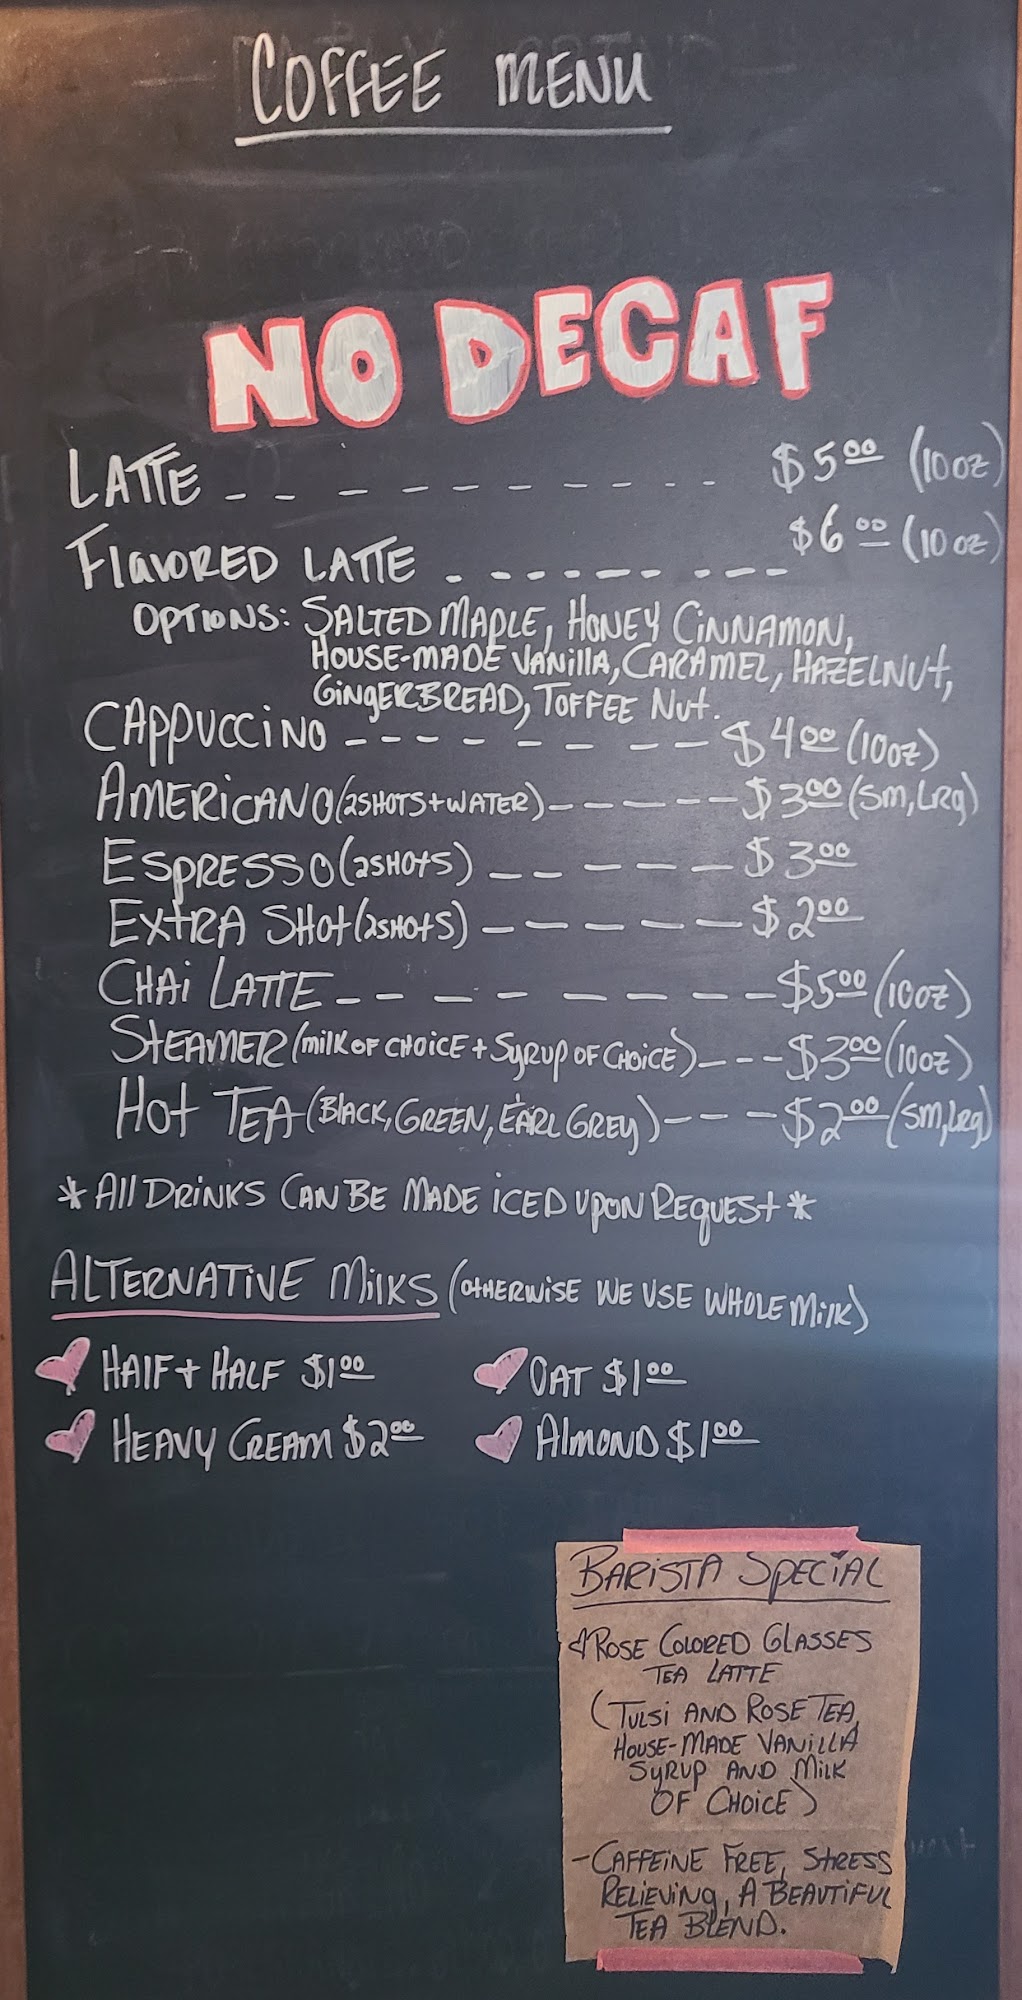 COFFEE MENU
NO DECAF
LATTE -- - - - - - - - - - $5.00 (10oz)
FLAVORED LATTE - - - - - - - - - - $6.00 (10oz)
OPTIONS: SALTED MAPLE, HONEY CINNAMON,
HOUSE-MADE VANILLA, CARAMEL, HAZELNUT,
GINGERBREAD, TOFFEE NUT.
CAPPUCCINO - - - - - - - - - $4.00 (10oz)
AMERICANO (2SHOTS+WATER) - - - - - - $3.00 (Sm, LRg)
ESPRESSO (2SHOTS) - - - - - - $3.00
EXTRA SHOT (2SHOTS) - - - - - - $2.00
CHAI LATTE - - - - - - - - - - $5.00 (10oz)
STEAMER (MILK OF CHOICE + SYRUP OF CHOICE) - - - $3.00 (10oz)
HOT TEA (BLACK, GREEN, EARL GREY) - - - $2.00 (Sm, LRg)
* ALL DRINKS CAN BE MADE ICED UPON REQUEST *
ALTERNATIVE MILKS (OTHERWISE WE USE WHOLE MILK)
HALF + HALF $1.00
OAT $1.00
HEAVY CREAM $2.00
ALMOND $1.00
BARISTA SPECIAL
ROSE COLORED GLASSES
TEA LATTE
(TULSI AND ROSE TEA,
HOUSE-MADE VANILLA
SYRUP AND MILK
OF CHOICE)
- CAFFEINE FREE, STRESS
RELIEVING, A BEAUTIFUL
TEA BLEND.